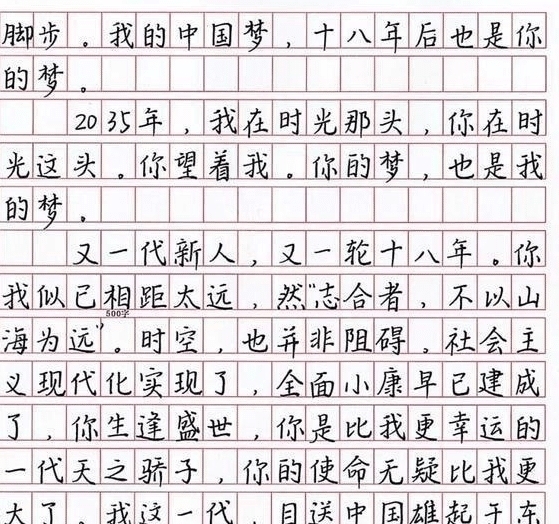 脚步。我的中国梦，十八年后也是你
的梦。
2035年，我在时光那头，你在时
光这头。你望着我。你的梦，也是我
的梦。
又一代新人，又一轮十八年。你
我似已相距太远，然“志合者，不以山
500字
海为远”。时空，也并非阻碍。社会主
义现代化实现了，全面小康早已建成
了，你生逢盛世，你是比我更幸运的
一代天之骄子，你的使命无疑比我更
大了。我这一代，目送中国雄起于东